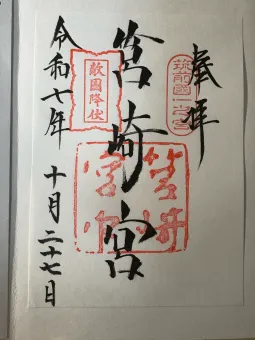 奉拝
筑前國一之宮
筥崎宮
敵国降伏
筥崎宮印
令和七年 十月二十七日